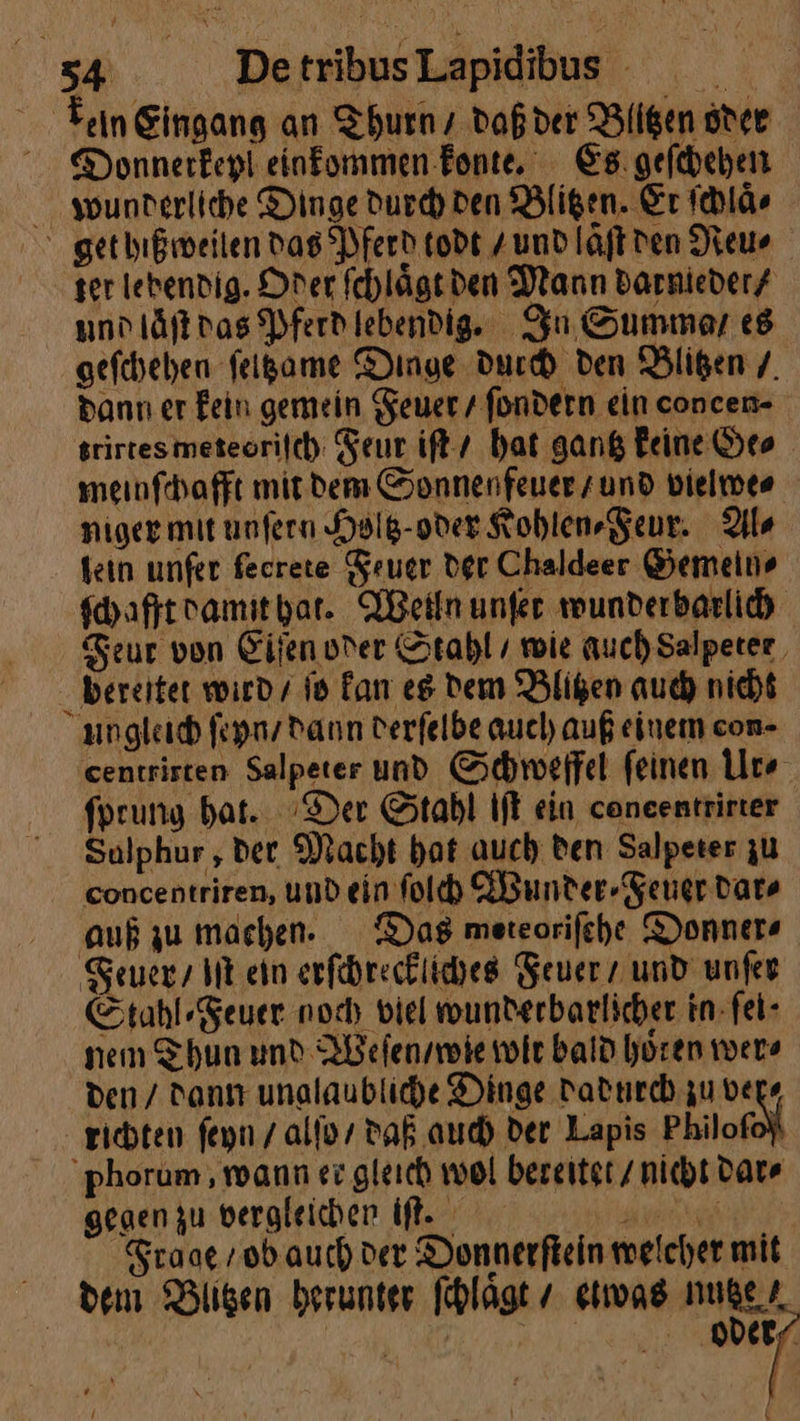 54 De tribus Lapidibus
kein Eingang an Thurn / daß der Blitzen oder
Donnerkeyl einkommen konte. Es geschehen
wunderliche Dinge durch den Blitzen. Er schlå-
get bißweilen das Pferd todt / und låst den Reu-
ter lebendig. Oder schlågt den Mann darnieder /
und låst das Pferd lebendig. In Summa / es
geschehen seltzame Dinge durch den Blitzen /
dann er kein gemein Feuer / sondern ein concen-
trirtes meteorisch Feur ist / hat gantz keine Ge-
meinschafft mit dem Sonnenfeuer / und vielwe-
niger mit unsern Holtz- oder Kohlen-Feur. Al-
lein unser secrete Feuer der Chaldeer Gemein-
schafft damit hat. Weiln unser wunderbarlich
Feur von Eisen oder Stahl / wie auch Salpeter
bereitet wird / so kan es dem Blitzen auch nicht
ungleich seyn / dann derselbe auch auß einem con-
centrirten Salpeter und Schweffel seinen Ur-
sprung hat. Der Stahl ist ein concentrirter
Sulphur, der Macht hat auch den Salpeter zu
concentriren, und ein solch Wunder-Feuer dar-
auß zu machen. Das meteorische Donner-
Feuer / ist ein erschreckliches Feuer / und unser
Stahl-Feuer noch viel wunderbarlicher in sei-
nem Thun und Wesen / wie wir bald hören wer-
den / dann unglaubliche Dinge dadurch zu ver-
richten seyn / also / daß auch der Lapis Philoso-
phorum, wann er gleich wol bereitet / nicht dar-
gegen zu vergleichen ist.
Frage / ob auch der Donnerstein welcher mit
dem Blitzen herunter schlågt / etwas nutze /
oder